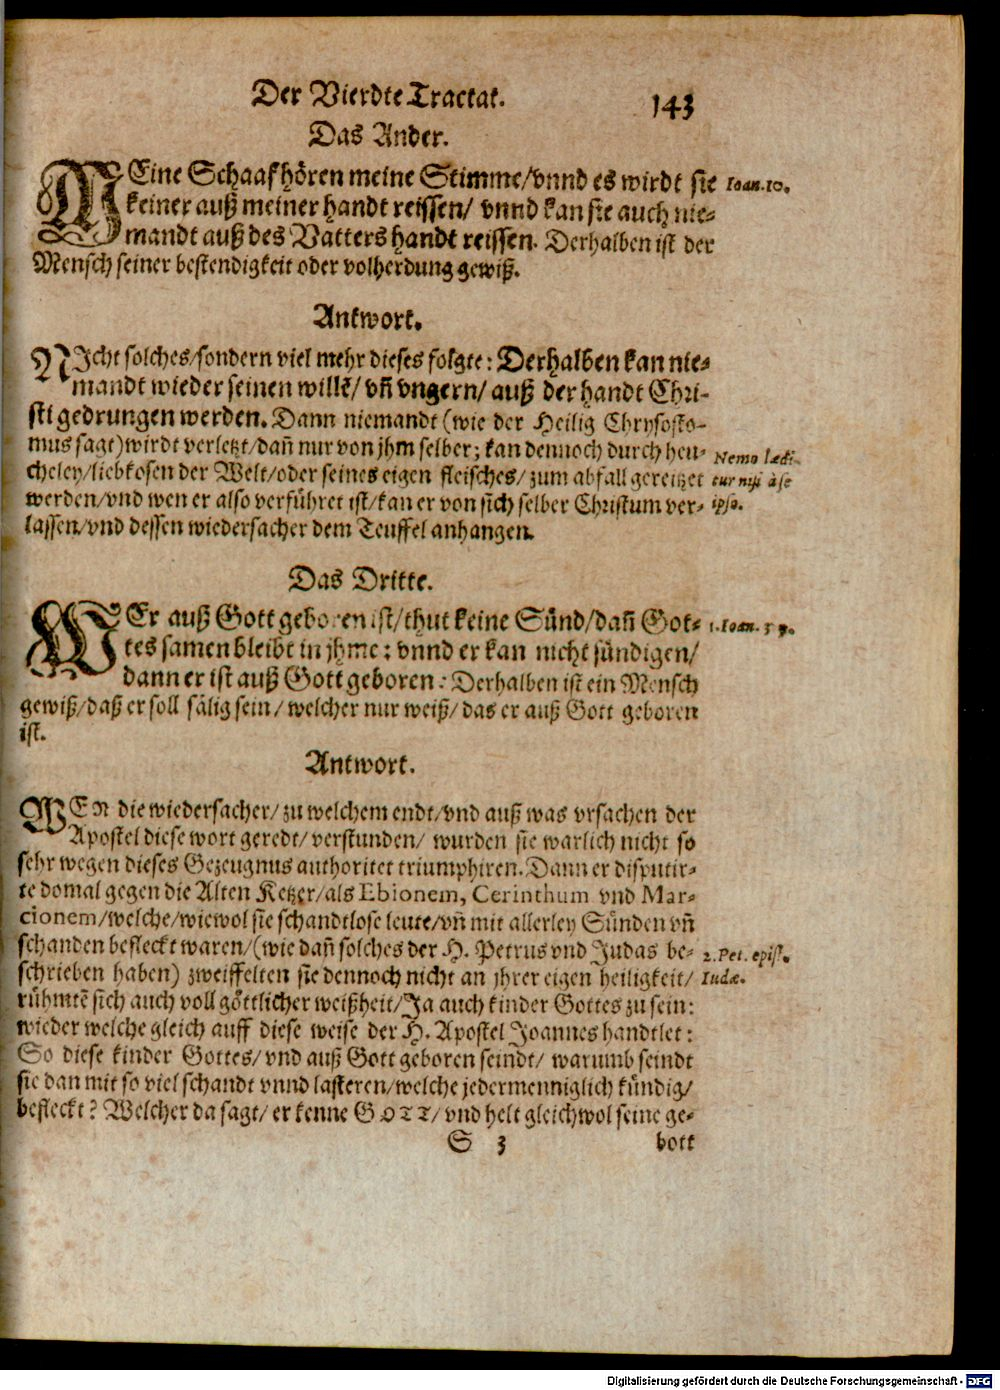 Der Vierdte Tractat. 143
Das Ander.
MEine Schaaf hören meine Stimme/vnnd es wirdt sie Ioan. 10.
keiner auß meiner handt reissen/ vnnd kan sie auch nie-
mandt auß des Vatters handt reissen. Derhalben ist der
Mensch seiner bestendigkeit oder volherdung gewiß.
Antwort.
NIcht solches/sondern viel mehr dieses folgte: Derhalben kan nie-
mandt wieder seinen willē/ vñ vngern/ auß der handt Chri-
sti gedrungen werden. Dann niemandt (wie der Heilig Chrysosto-
mus sagt) wirdt verletzt/dañ nur von jhm selber; kan dennoch durch heu- Nemo lædi-
cheley/liebkosen der Welt/oder seines eigen fleisches/ zum abfall gereitzet tur nisi à se
werden/vnd wen er also verführet ist/kan er von sich selber Christum ver- ipso.
lassen/vnd dessen wiedersacher dem Teuffel anhangen.
Das Dritte.
WEr auß Gott geboren ist/thut keine Sünd/dañ Got- 1. Ioan. 3 9.
tes samen bleibt in jhme: vnnd er kan nicht sündigen/
dann er ist auß Gott geboren: Derhalben ist ein Mensch
gewiß/daß er soll sälig sein/ welcher nur weiß/ das er auß Gott geboren
ist.
Antwort.
WEn die wiedersacher/ zu welchem endt/vnd auß was vrsachen der
Apostel diese wort geredt/ verstunden/ wurden sie warlich nicht so
sehr wegen dieses Gezeugnus authoritet triumphiren. Dann er disputir-
te domal gegen die Alten Ketzer/als Ebionem, Cerinthum vnd Mar-
cionem/welche/wiewol sie schandtlose leute/vñ mit allerley Sünden vñ
schanden befleckt waren/(wie dañ solches der H. Petrus vnd Judas be- 2. Pet. epist.
schrieben haben) zweiffelten sie dennoch nicht an jhrer eigen heiligkeit/ Iudæ.
rühmtē sich auch voll göttlicher weißheit/Ja auch kinder Gottes zu sein:
wieder welche gleich auff diese weise der H. Apostel Joannes handtlet:
So diese kinder Gottes/ vnd auß Gott geboren seindt/ warumb seindt
sie dan mit so viel schandt vnnd lasteren/welche jedermenniglich kündig/
befleckt? Welcher da sagt/ er kenne GOTT/ vnd helt gleichwol seine ge-
S 3 bott
Digitalisierung gefördert durch die Deutsche Forschungsgemeinschaft - DFG